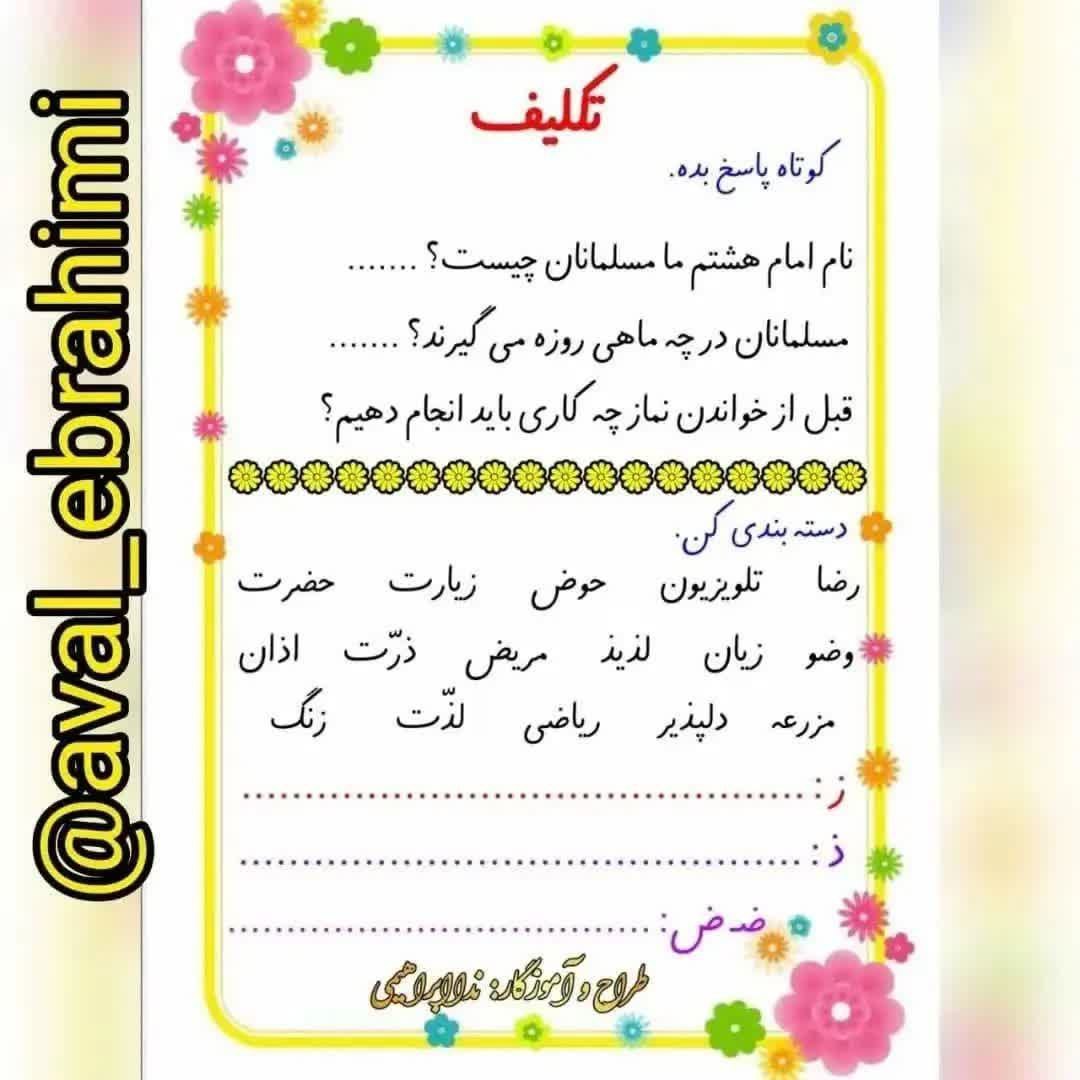 @aval_ebrahimi
تکلیف
کوتاه پاسخ بده.
نام امام هشتم ما مسلمانان چیست؟ .......
مسلمانان در چه ماهی روزه می گیرند؟ .......
قبل از خواندن نماز چه کاری باید انجام دهیم؟
دسته بندی کن.
رضا تلویزیون حوض زیارت حضرت
وضو زیان لذیذ مریض ذرّت اذان
مزرعه دلپذیر ریاضی لذّت زنگ
ز : ..............................................
ذ : ..............................................
ضـ ض: ...................................
طراح و آموزگار: ندا ابراهیمی